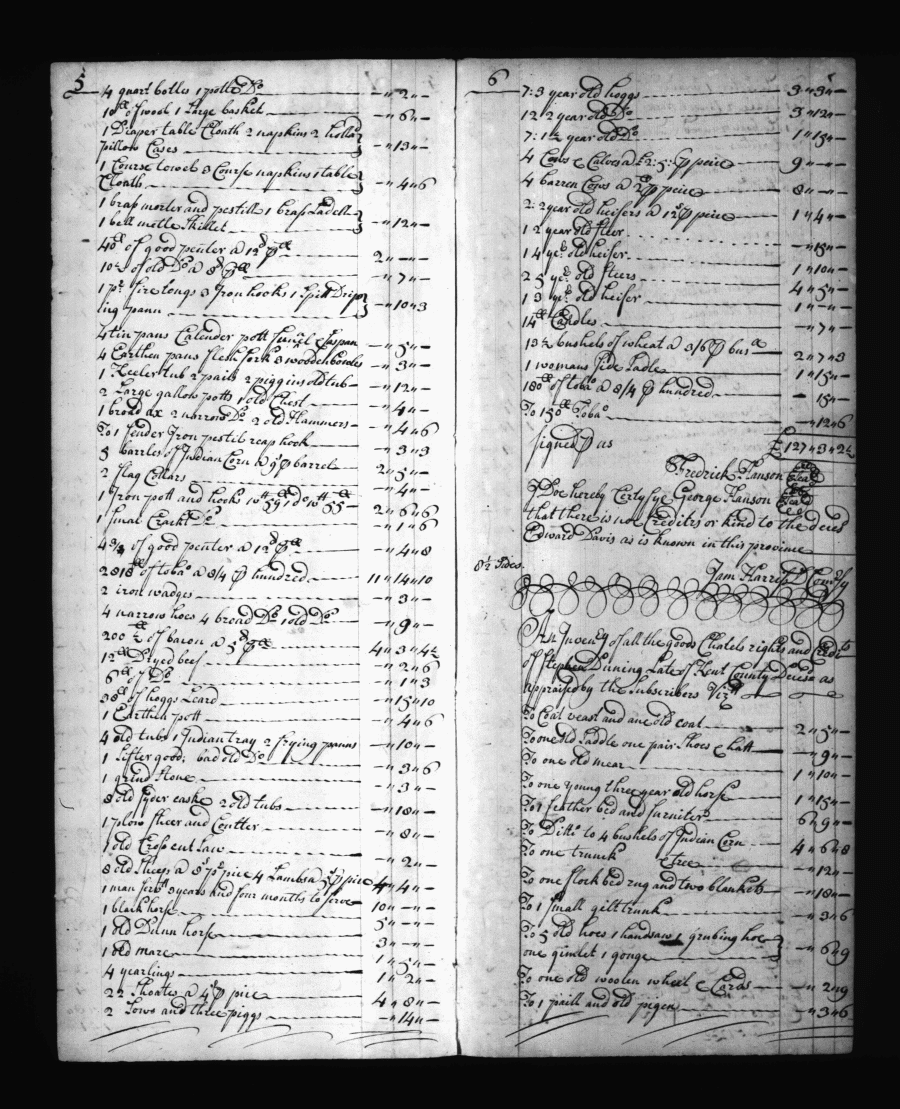 5
4 quart botles 1 pottle Do — " 2 " —
10 lb of wool 1 Large basket — " 6 " —
1 Diaper table Cloath 2 napkins 2 holla
pillow Cases — " 13 " —
1 Course towel 3 Course napkins 1 table
Cloath — " 4 " 6
1 brass morter and pestill 1 brass Ladell
1 bell mettle Skillet — " 12 " —
40 lb of good peuter a 12d p lb 2 " — " —
10½ of old Do a 8d p lb — " 7 " —
1 pr fire tongs 3 Iron hooks 1 Spitt Drip
ing pann — " 10 " 3
4 tin pans Calender pott funel Saspan — " 5 " —
4 Earthen pans flesh fork 3 wooden bowles — " 3 " —
1 Keeler tub 2 pails 2 piggins old tub — " 12 " —
2 Large gallon potts 1 old Chest — " 4 " —
1 broad ax 2 narrow Do 2 old Hammers — " 4 " 6
To 1 fender Iron pestil reap hook — " 3 " 3
5 barrles of Indian Corn a 9s p barrel 2 " 5 " —
2 flag Collars — " 4 " —
1 Iron pott and hooks 2 " 6 " 6
1 smal Crackt Do — " 1 " 6
4¾ of good peuter a 12d p lb — " 4 " 8
2818 lb of toba a 8/4 p hundred 11 " 14 " 10
2 iron wadges — " 3 " —
4 narrow hoes 4 broad Do 1 old Do — " 9 " —
200½ lb of bacon a 5d p lb 4 " 3 " 4½
12 lb Dryed beef — " 2 " 6
6 lb of Do — " 1 " 3
38 lb of hoggs Leard — " 15 " 10
1 Earthen pott — " 4 " 6
4 old tubs 1 Indian tray 2 frying panns — " 10 " —
1 Sifter good; bad old Do — " 3 " 6
1 grind stone — " 3 " —
8 old Syder casks 2 old tubs — " 18 " —
1 plow sheer and Coutter — " 8 " —
1 old Cross cut saw — " 2 " —
8 old Sheep a 8s p piece 4 Lambs a 5s p piece 4 " 4 " —
1 man servt 3 years and four months to serve 10 " — " —
1 black horse 5 " — " —
1 old Dunn horse 3 " — " —
1 old mare 1 " 5 " —
4 yearlings 1 " 2 " —
22 Shoates a 4s p piece 4 " 8 " —
2 Sows and three piggs — " 14 " —
6
7: 3 year old hoggs 3 " 3 " —
12 2 year old Do 3 " 12 " —
7: 1½ year old Do 1 " 15 " —
4 Cows & Calves a £2: 5: p peice 9 " — " —
4 barren Cows a 2£ p peice 8 " — " —
2: 2 year old heifers a 12s p peice 1 " 4 " —
1 2 year old steer — " 15 " —
1 4 ye: old heifer 1 " 10 " —
2 5 ye: old steers 4 " 5 " —
1 3 ye: old heifer 1 " — " —
14 lb Candles — " 7 " —
13½ bushels of wheat a 3/6 p bus 2 " 7 " 3
1 womans Side Sadle 1 " 15 " —
180 lb of toba a 8/4 p hundred — " 15 " —
To 150 lb Toba — " 12 " 6
signed p us £ 127 " 3 " 2½
Fredrick Hanson Seal
I Doe hereby Certifye George Hanson Seal
that there is not Creditrs or kind to the decesd
Edward Davis as is known in this province
8½ sides
Jam Harris D Comsy
An Inveny of all the goods Chatels rights and Credits
of Stephen Dunning Late of Kent County Decesd as
appraised by the subscribers Vizt
To Coat veast and ane old coat 2 " 5 " —
To one old Saddle one pair Shoes & hatt — " 9 " —
To one old mear 1 " 10 " —
To one young three year old horse 1 " 15 " —
To 1 feather bed and furniter 6 " 9 " —
To Ditto to 4 bushels of Indian Corn 4 " 6 " 8
To one trunck — " 12 " —
To one flock bed rug and two blankets — " 18 " —
To 1 Small gilt trunk — " 3 " 6
To 5 old hoes 1 handsaw 1 grubing hoe
one gimlet 1 gouge — " 6 " 9
To one old woolen wheel & Cards — " 2 " 9
To 1 paill and old pigen — " 3 " 6